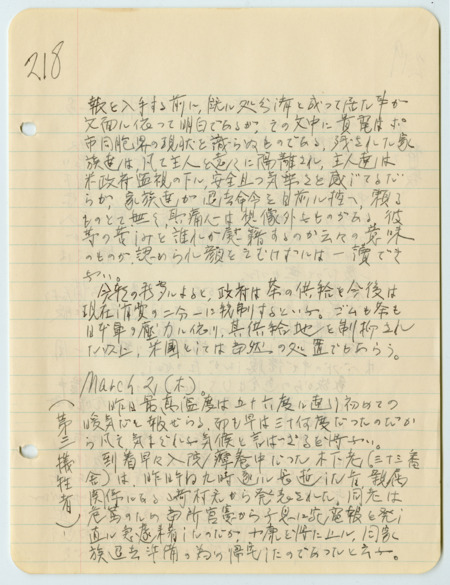 218
報を入手する前に、既に処分済と成って居た事が
文面に依って明白であるが、その文中に貴電はポ
市同胞界の現状を識らぬものである。残された家
族達は凡て主人と遠くに隔離され、主人達は
米政府監視の下に、安全且つ気楽さを感じてるだ
らが、家族達が退去命令を目前に控へ、頼る
ものとて無く、其痛心は想像外のものがある。彼
等の苦しみを誰れが慰藉するのか云々の意味
のものが認められ、顔をそむけずには一読でき
ない。
今夜の
によると、政府は茶の供給を今後は
現在消費の二分一に統制するといふ。ゴムも茶も
日本軍の圧力に依り、其供給地を制扼され
た以上、米国としては当然の処置でもあらう。
March 21 (木)。
昨日最高温度は五十六度に達り初めての
暖気だと報ぜらる。卯も早は三十何度だったのだか
ら凡そ気まぐれな気候と言はざるを得ない。
(第二犠牲者)
到着早々入院療養中だった木下老(三十三番
舎)は、昨日午后九時遂に長逝した旨、親属
関係にある
村兄から発表された。同老は
危篤のため当所官憲から子息に
電報を発し
直に
到着したのだが、
に止ま
、同家
族退去準備の為め帰宅したのであったと云ふ。